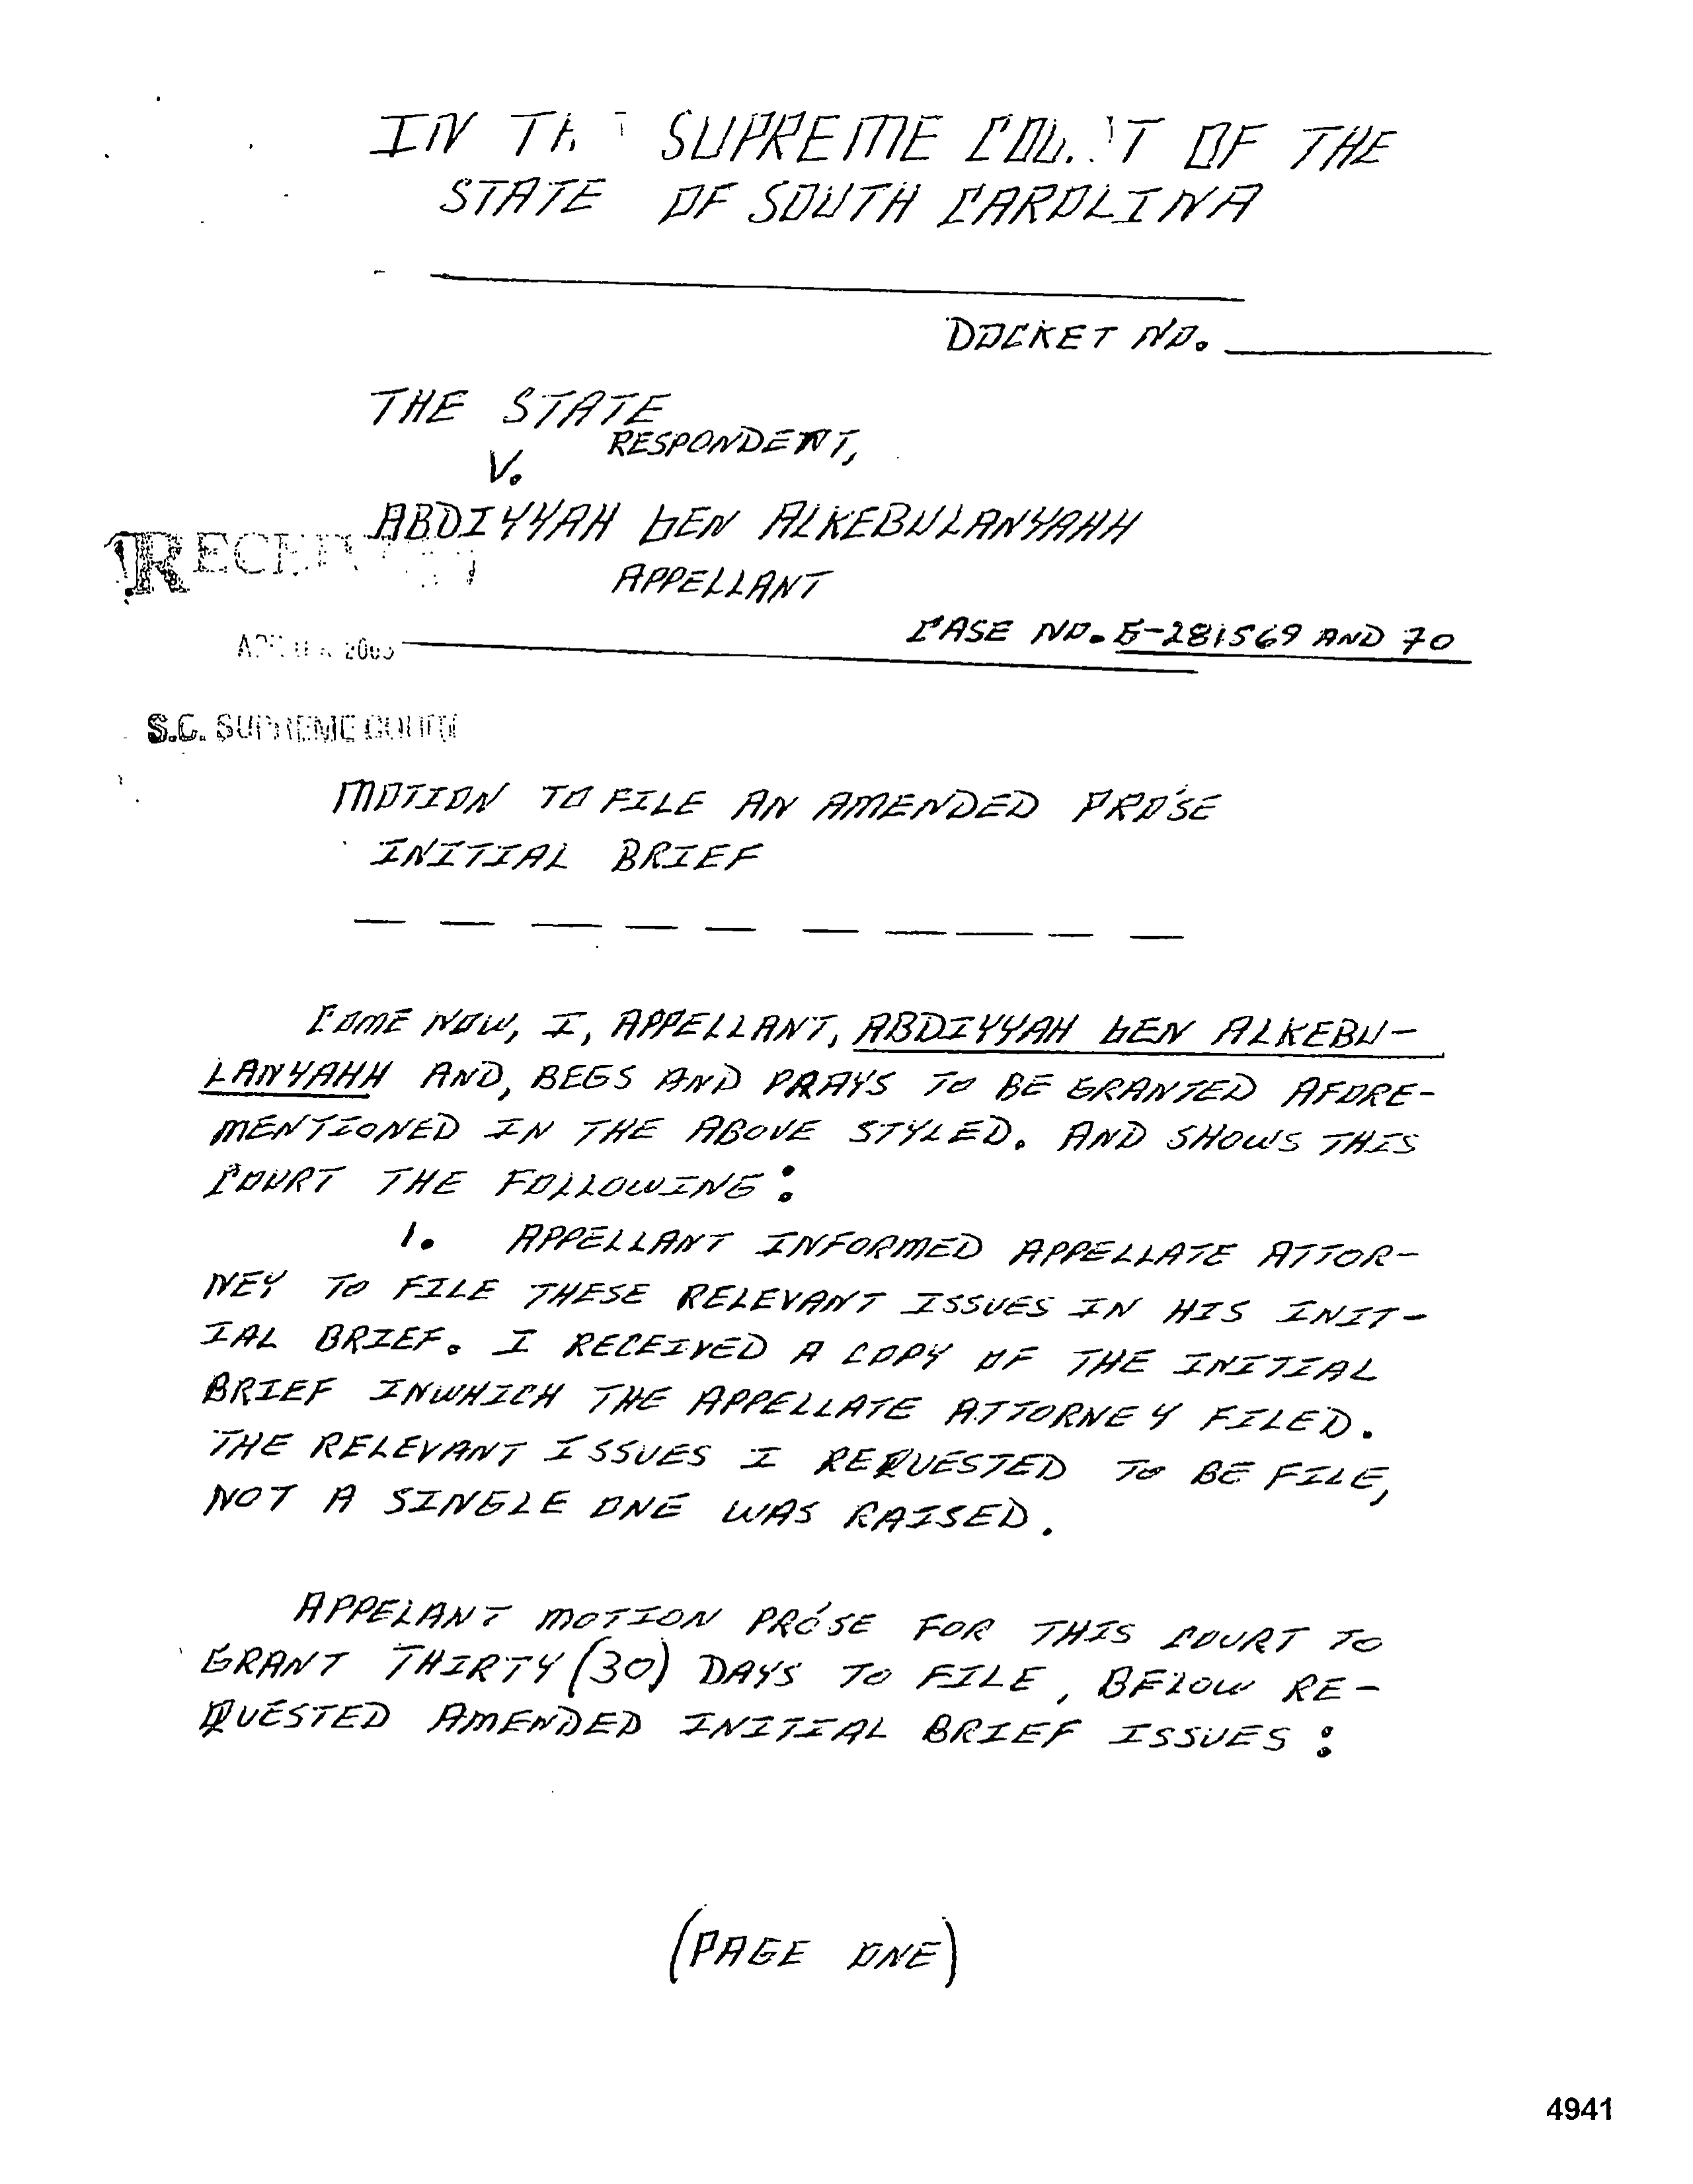 IN THE SUPREME COURT OF THE
STATE OF SOUTH CAROLINA
DOCKET NO.
THE STATE
RESPONDENT,
V.
ABDIYYAH bEN ALKEBULANYAHH
RECEIVED
APPELLANT
CASE NO. G-281569 AND 70
S.C. SUPREME COURT
MOTION TO FILE AN AMENDED PRO'SE
INITIAL BRIEF
COME NOW, I, APPELLANT, ABDIYYAH bEN ALKEBU-
LANYAHH AND, BEGS AND PRAYS TO BE GRANTED AFORE-
MENTIONED IN THE ABOVE STYLED. AND SHOWS THIS
COURT THE FOLLOWING:
1. APPELLANT INFORMED APPELLATE ATTOR-
NEY TO FILE THESE RELEVANT ISSUES IN HIS INIT-
IAL BRIEF. I RECEIVED A COPY OF THE INITIAL
BRIEF INWHICH THE APPELLATE ATTORNEY FILED.
THE RELEVANT ISSUES I REQUESTED TO BE FILE,
NOT A SINGLE ONE WAS RAISED.
APPELANT MOTION PRO'SE FOR THIS COURT TO
GRANT THIRTY (30) DAYS TO FILE, BELOW RE-
QUESTED AMENDED INITIAL BRIEF ISSUES:
(PAGE ONE)
4941